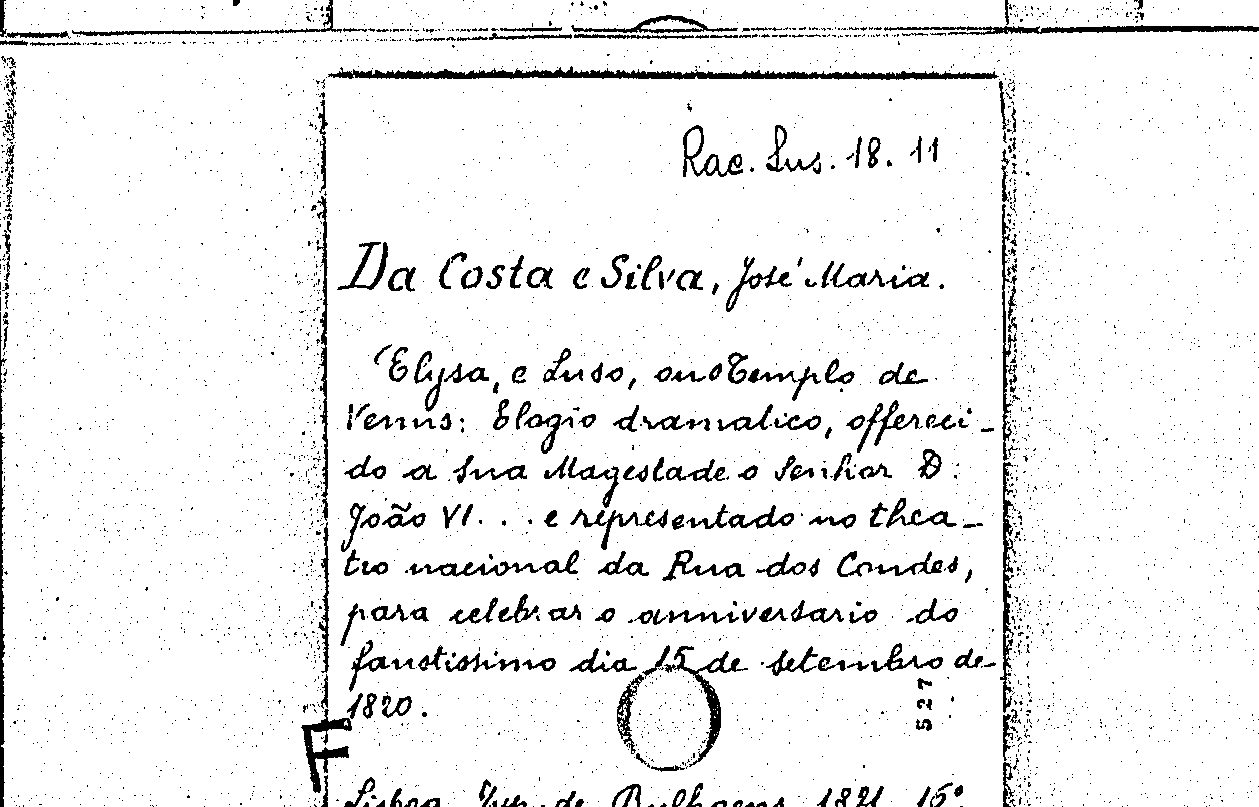 Rac. Lus. 18. 11
Da Costa e Silva, José Maria.
Elysa, e Luso, ou o Templo de
Venus: Elogio dramatico, offereci-
do a Sua Magestade o Senhor D.
João VI... e representado no thea-
tro nacional da Rua dos Condes,
para celebrar o anniversario do
faustissimo dia 15 de setembro de
1820.
527
F
Lisboa, Typ. de Bulhoens 1821 15º